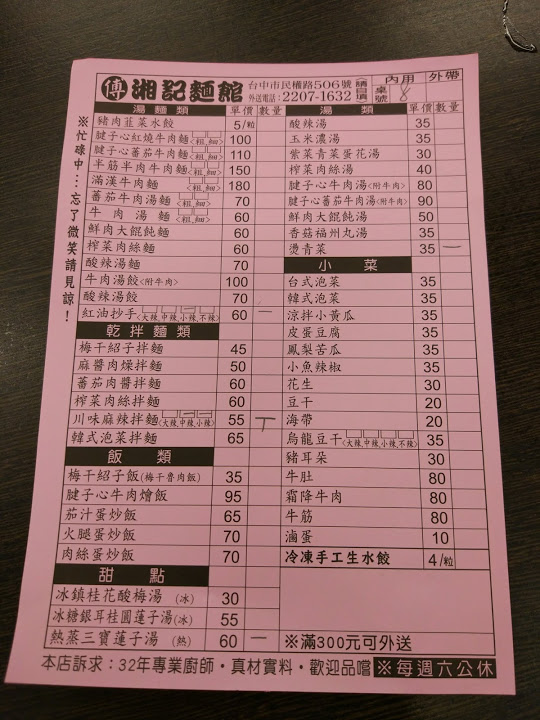 傳 湘記麵館 台中市民權路506號
外送電話：2207-1632
請自填 桌號 8 內用 外帶
※忙碌中…忘了微笑請見諒！
湯麵類 單價 數量
豬肉韮菜水餃 5/粒
腱子心紅燒牛肉麵<粗,細> 100
腱子心蕃茄牛肉麵<粗,細> 110
半筋半肉牛肉麵<粗,細> 150
滿漢牛肉麵<粗,細> 180
蕃茄牛肉湯麵<粗,細> 70
牛肉湯麵<粗,細> 60
鮮肉大餛飩麵 60
榨菜肉絲麵 60
酸辣湯麵 70
牛肉湯餃<附牛肉> 100
酸辣湯餃 70
紅油抄手<大辣,中辣,小辣,不辣> 60 一
乾拌麵類
梅干紹子拌麵 45
麻醬肉燥拌麵 50
蕃茄肉醬拌麵 60
榨菜肉絲拌麵 60
川味麻辣拌麵<大辣,中辣,小辣> 55 丅
韓式泡菜拌麵 65
飯類
梅干紹子飯(梅干魯肉飯) 35
腱子心牛肉燴飯 95
茄汁蛋炒飯 65
火腿蛋炒飯 70
肉絲蛋炒飯 70
甜點
冰鎮桂花酸梅湯 (冰) 30
冰糖銀耳桂圓蓮子湯(冰) 55
熱蒸三寶蓮子湯 (熱) 60 一
湯類 單價 數量
酸辣湯 35
玉米濃湯 35
紫菜青菜蛋花湯 30
榨菜肉絲湯 40
腱子心牛肉湯<附牛肉> 80
腱子心蕃茄牛肉湯<附牛肉> 90
鮮肉大餛飩湯 50
香菇福州丸湯 35
燙青菜 35 一
小菜
台式泡菜 35
韓式泡菜 35
涼拌小黃瓜 35
皮蛋豆腐 35
鳳梨苦瓜 35
小魚辣椒 35
花生 30
豆干 20
海帶 20
烏龍豆干<大辣,中辣,小辣,不辣> 35
豬耳朵 30
牛肚 80
霜降牛肉 80
牛筋 80
滷蛋 10
冷凍手工生水餃 4/粒
※滿300元可外送
本店訴求：32年專業廚師・真材實料・歡迎品嚐 ※每週六公休